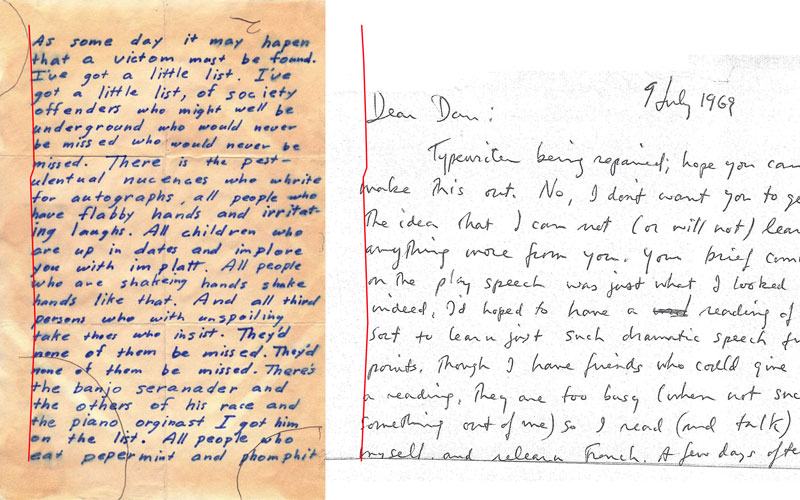 As some day it may hapen
that a victom must be found.
I've got a little list. I've
got a little list, of society
offenders who might well be
underground who would never
be missed who would never be
missed. There is the pest-
ulentual nucences who whrite
for autographs, all people who
have flabby hands and irritat-
ing laughs. All children who
are up in dates and implore
you with im platt. All people
who are shakeing hands shake
hands like that. And all third
persons who with unspoiling
take thoes who insist. They'd
none of them be missed. They'd
none of them be missed. There's
the banjo seranader and
the others of his race and
the piano orginast I got him
on the list. All people who
eat pepermint and phomphit
9 July 1969
Dear Dan:
Typewriter being repaired; hope you can
make this out. No, I don't want you to ge
the idea that I can not (or will not) lear
anything more from you. Your brief com
on the play speech was just what I looked
indeed, I'd hoped to have a reading of
sort to learn just such dramatic speech fu
points. Though I have friends who could give
a reading, they are too busy (when not suc
something out of me) so I read (and talk)
myself and relearn French. A few days afte